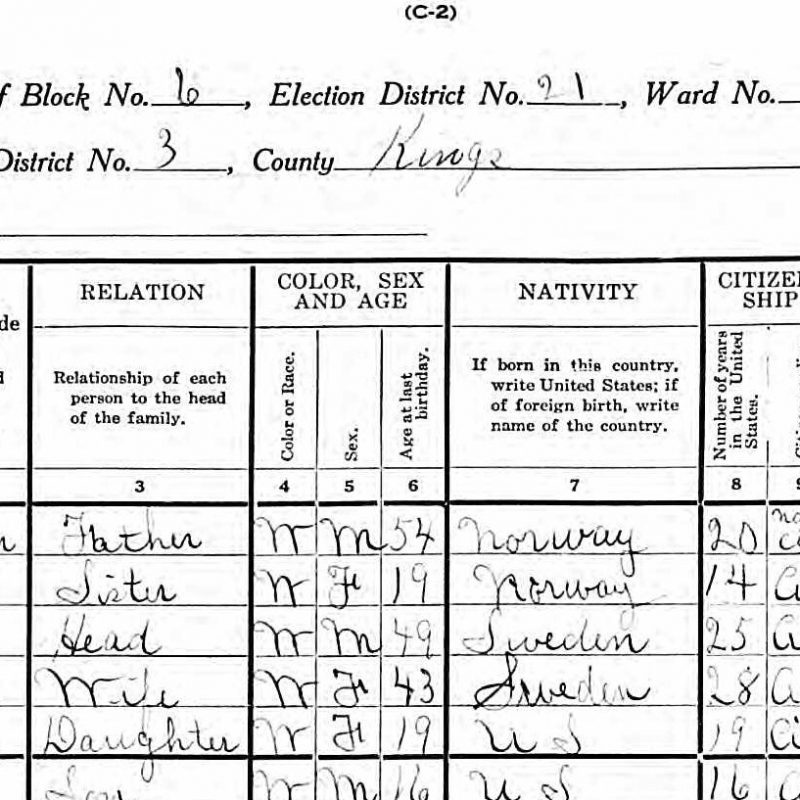 (C-2)
f Block No. 6, Election District No. 21, Ward No.
District No. 3, County Kings
RELATION COLOR, SEX AND AGE NATIVITY CITIZE SHIP
de
Relationship of each person to the head of the family.
Color or Race.
Sex.
Age at last birthday.
If born in this country, write United States; if of foreign birth, write name of the country.
Number of years in the United States.
3 4 5 6 7 8 9
Father W M 54 Norway 20
Sister W F 19 Norway 14
Head W M 49 Sweden 25
Wife W F 43 Sweden 28
Daughter W F 19 U S 19 Ci
Son W M 16 U S 16